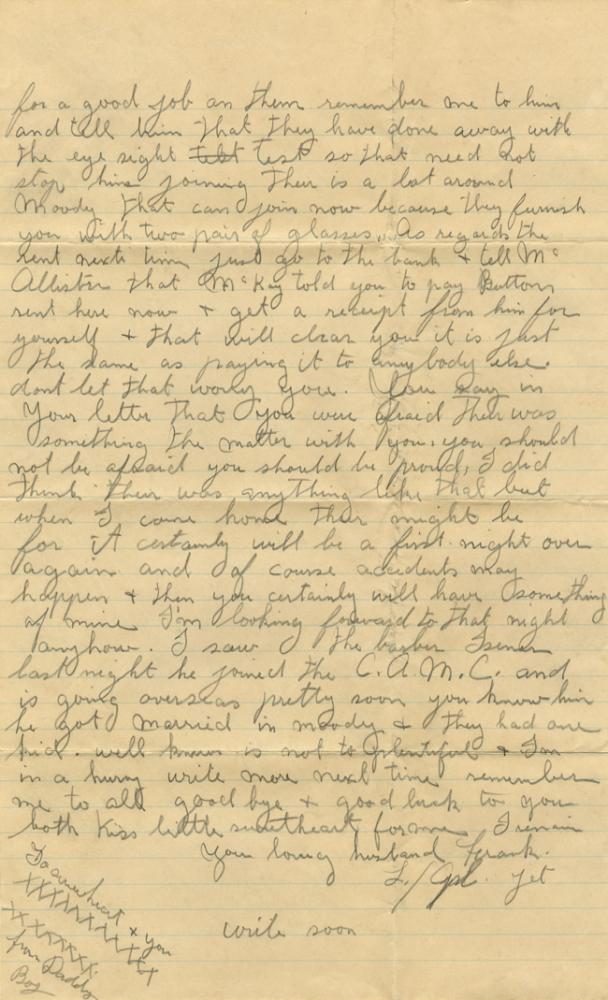 for a good job on them remember me to him
and tell him that they have done away with
the eye sight test so that need not
stop him joining their is a lot around
Moody that can join now because they furnish
you with two pair of glasses, As regards the
rent next time just go to the bank + tell Mc
Allister that McKay told you to pay Button
rent here now + get a receipt from him for
yourself + that will clear you it is just
the same as paying it to anybody else.
dont let that worry you. You say in
Your letter that you were afraid their was
something the matter with you, you should
not be afraid you should be proud, I did
think their was anything like that but
when I come home their might be
for it certainly will be a first night over
again and of course accidents may
happen + then you certainly will have something
of mine I'm looking forward to that night
anyhow. I saw the barber
last night he joined the C.A.M.C. and
is going overseas pretty soon you know him
he got married in moody & they had one
kid. well is not to plentiful + I am
in a hurry write more next time remember
me to all good bye + good luck to you
both Kiss little sweetheart for me I remain
Your loving husband Frank.
L/Cpl. yet
write soon
To sweetheart x you
XXXXXXXXXXX
XXXXXXX
from Daddy
Boy